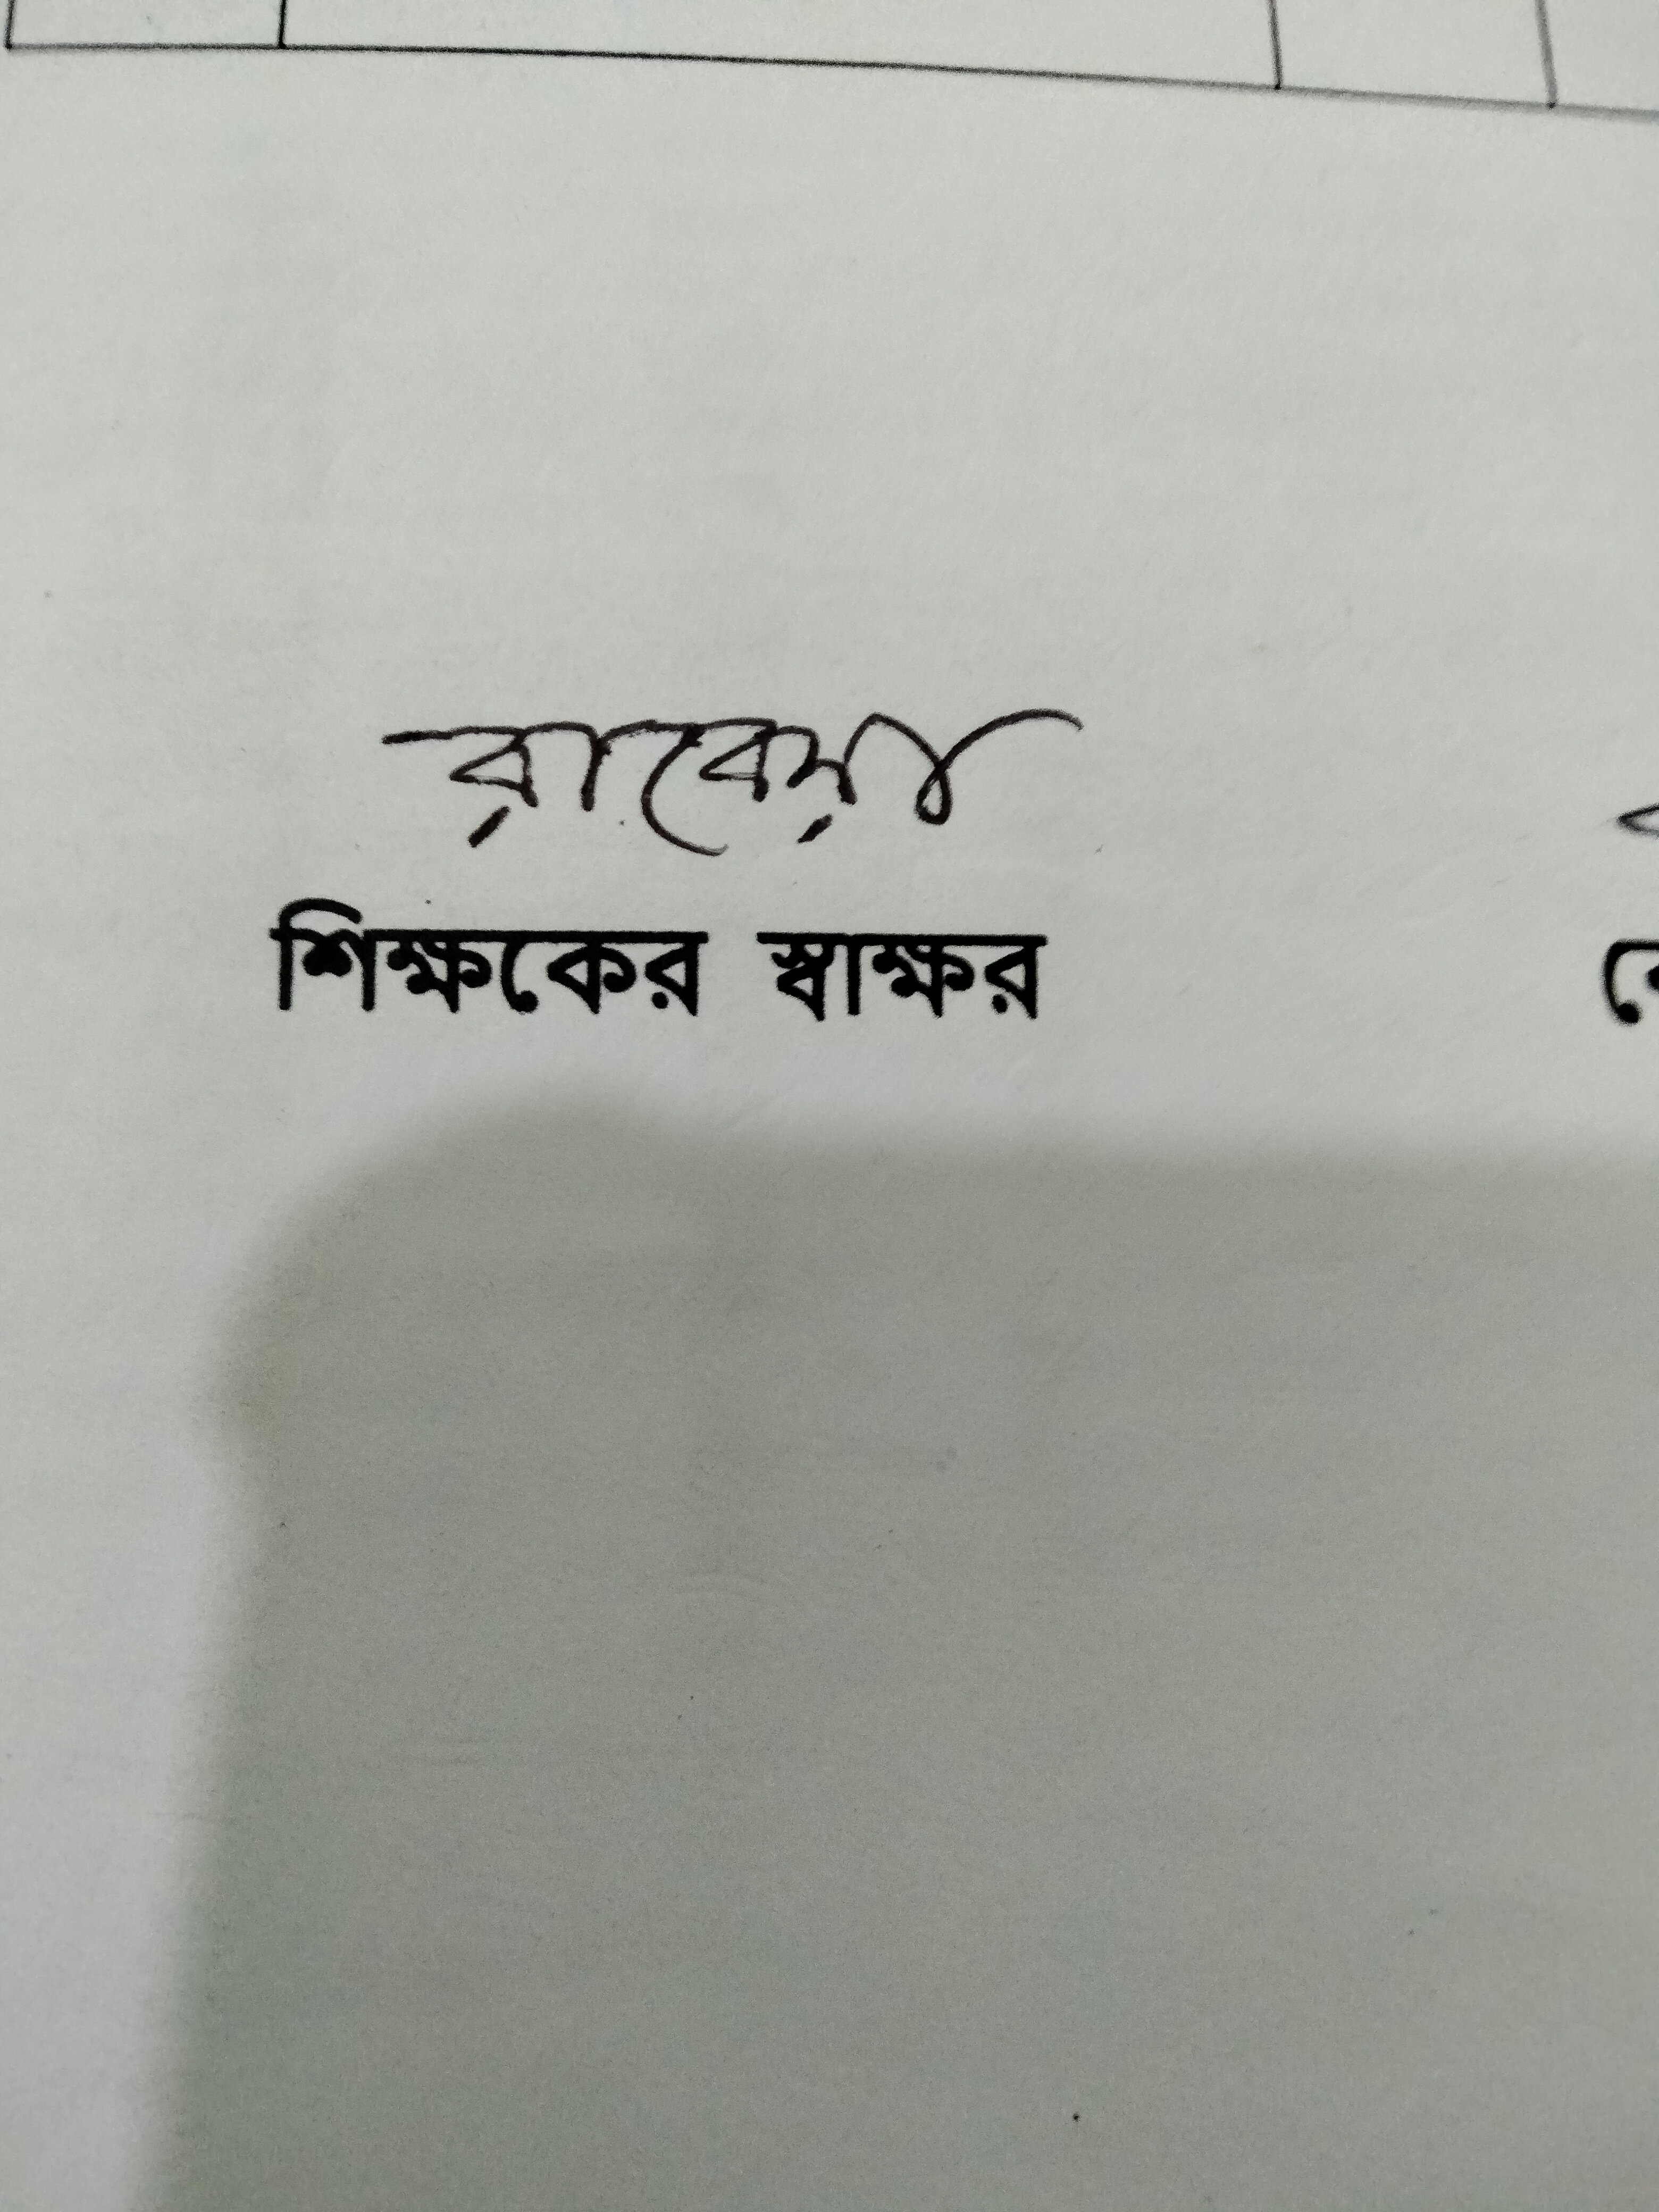 রাবেয়া
শিক্ষকের স্বাক্ষর